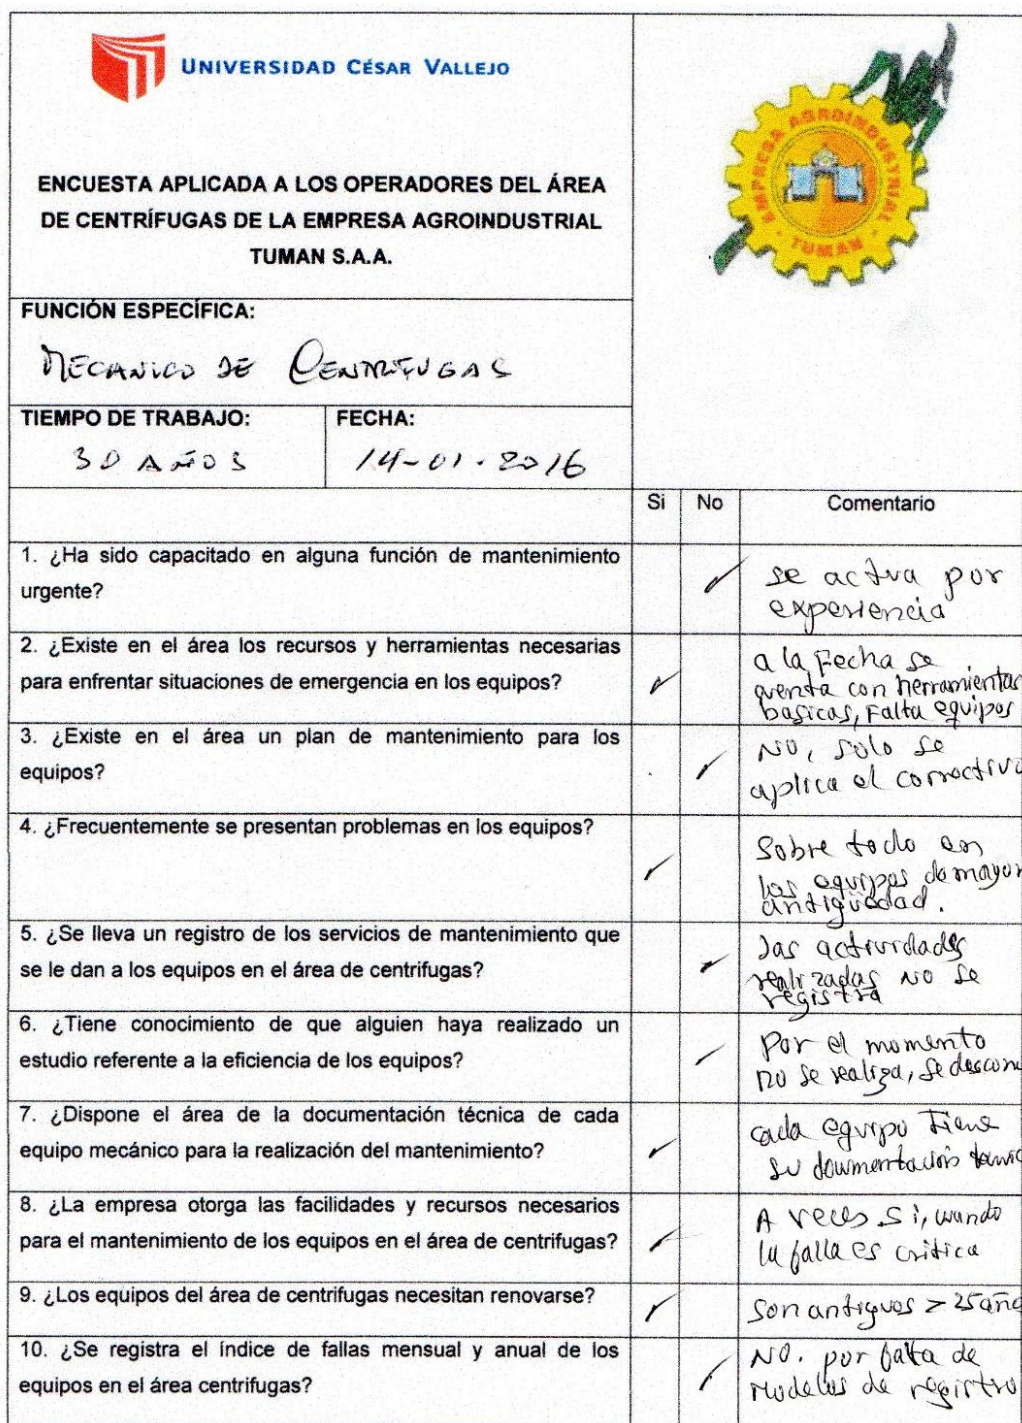 UNIVERSIDAD CÉSAR VALLEJO
EMPRESA AGROINDUSTRIAL
- TUMAN -
ENCUESTA APLICADA A LOS OPERADORES DEL ÁREA
DE CENTRÍFUGAS DE LA EMPRESA AGROINDUSTRIAL
TUMAN S.A.A.
FUNCIÓN ESPECÍFICA:
MECANICO DE CENTRIFUGAS
TIEMPO DE TRABAJO: FECHA:
30 AÑOS 14-01-2016
Si No Comentario
1. ¿Ha sido capacitado en alguna función de mantenimiento
urgente?
✓ se activa por
experiencia
2. ¿Existe en el área los recursos y herramientas necesarias
para enfrentar situaciones de emergencia en los equipos?
✓ a la Fecha se
cuenta con herramientas
basicas, Falta equipos
3. ¿Existe en el área un plan de mantenimiento para los
equipos?
✓ NO, solo se
aplica el correctivo
4. ¿Frecuentemente se presentan problemas en los equipos?
✓ Sobre todo en
los equipos de mayor
antigüedad.
5. ¿Se lleva un registro de los servicios de mantenimiento que
se le dan a los equipos en el área de centrifugas?
✓ Las actividades
realizadas NO se
registra
6. ¿Tiene conocimiento de que alguien haya realizado un
estudio referente a la eficiencia de los equipos?
✓ Por el momento
no se realiza, se descon
7. ¿Dispone el área de la documentación técnica de cada
equipo mecánico para la realización del mantenimiento?
✓ cada equipo Tiene
su documentación tecnic
8. ¿La empresa otorga las facilidades y recursos necesarios
para el mantenimiento de los equipos en el área de centrifugas?
✓ A veces si, cuando
la falla es critica
9. ¿Los equipos del área de centrifugas necesitan renovarse?
✓ Son antiguos > 25 año
10. ¿Se registra el índice de fallas mensual y anual de los
equipos en el área centrifugas?
✓ NO. por falta de
modelos de registro